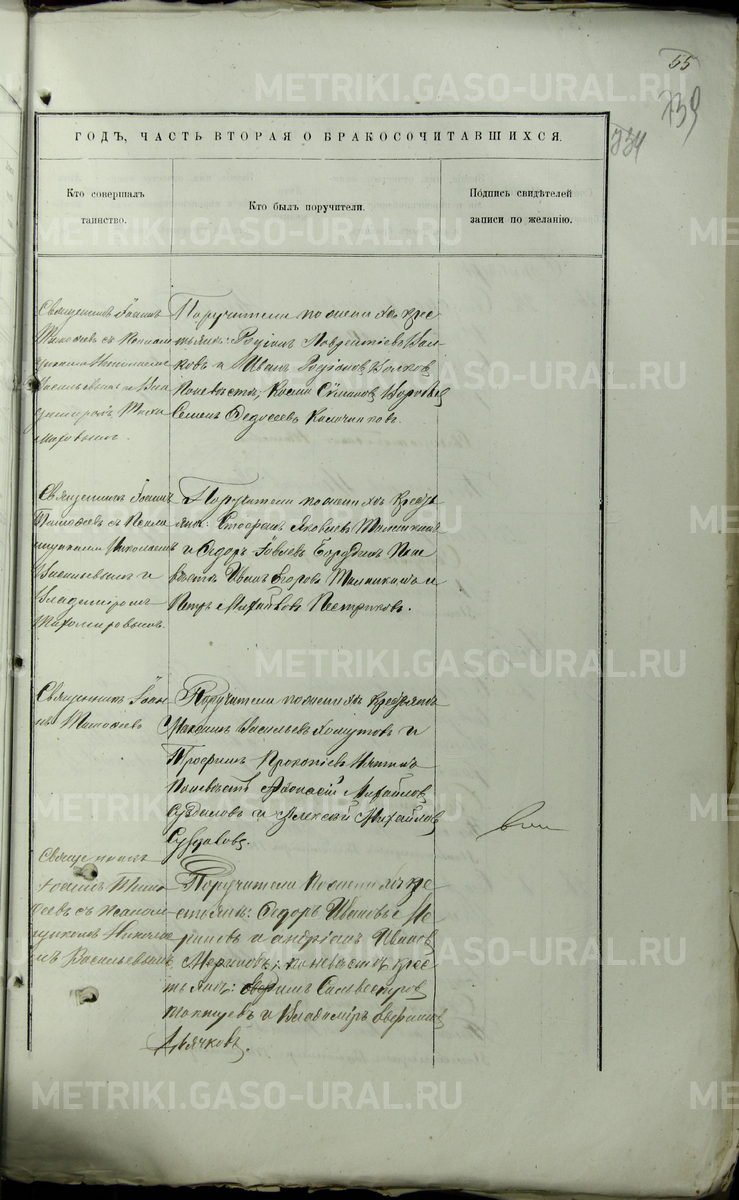 55
739
734
METRIKI.GASO-URAL.RU
ГОДЪ, ЧАСТЬ ВТОРАЯ О БРАКОСОЧИТАВШИХСЯ.
Кто совершалъ
таинство.
Кто былъ поручители.
Подпись свидѣтелей
записи по желанію.
Священникъ Іоаннъ
Тимофеевъ съ Псалом
щикомъ Николаем
Васильевымъ и Вла
димиромъ Тихо
мировымъ.
Поручители по жениху крес
тьяне: Родіонъ Лаврентіевъ
ковъ и Иванъ Родіоновъ Волковъ
По невѣстѣ; Косма
Семенъ Федосеевъ Калачиковъ.
Священникъ Іоаннъ
Тимофеевъ съ Псалом
щикомъ Николаемъ
Васильевымъ и
Владиміромъ
Тихомировымъ
Поручители по жениху Крестья
яне: Стефанъ Яковлевъ
и Федоръ Бородинъ По не
вѣстѣ Иванъ Егоровъ и
Петръ Михайловъ Пестриковъ.
Священникъ Іоан
нъ Тимофеевъ
Поручители по жениху Крестьяне
Максимъ Васильевъ Хомутовъ и
Трофимъ Прокопіевъ
По невѣстѣ Афонасій Михайловъ
Суздаловъ и Алексѣй Михайловъ
Суздаловъ.
Священникъ
Іоаннъ Тимо
феевъ съ Псалом
щикомъ Никола
емъ Васильевымъ
Поручители по жениху кре
стьяне: Федоръ Ивановъ Ме
риновъ и Андріанъ Ивановъ
Мериновъ; по невѣстѣ крес
тьяне: Сильвестровъ
и Владиміръ
Дьячковъ.